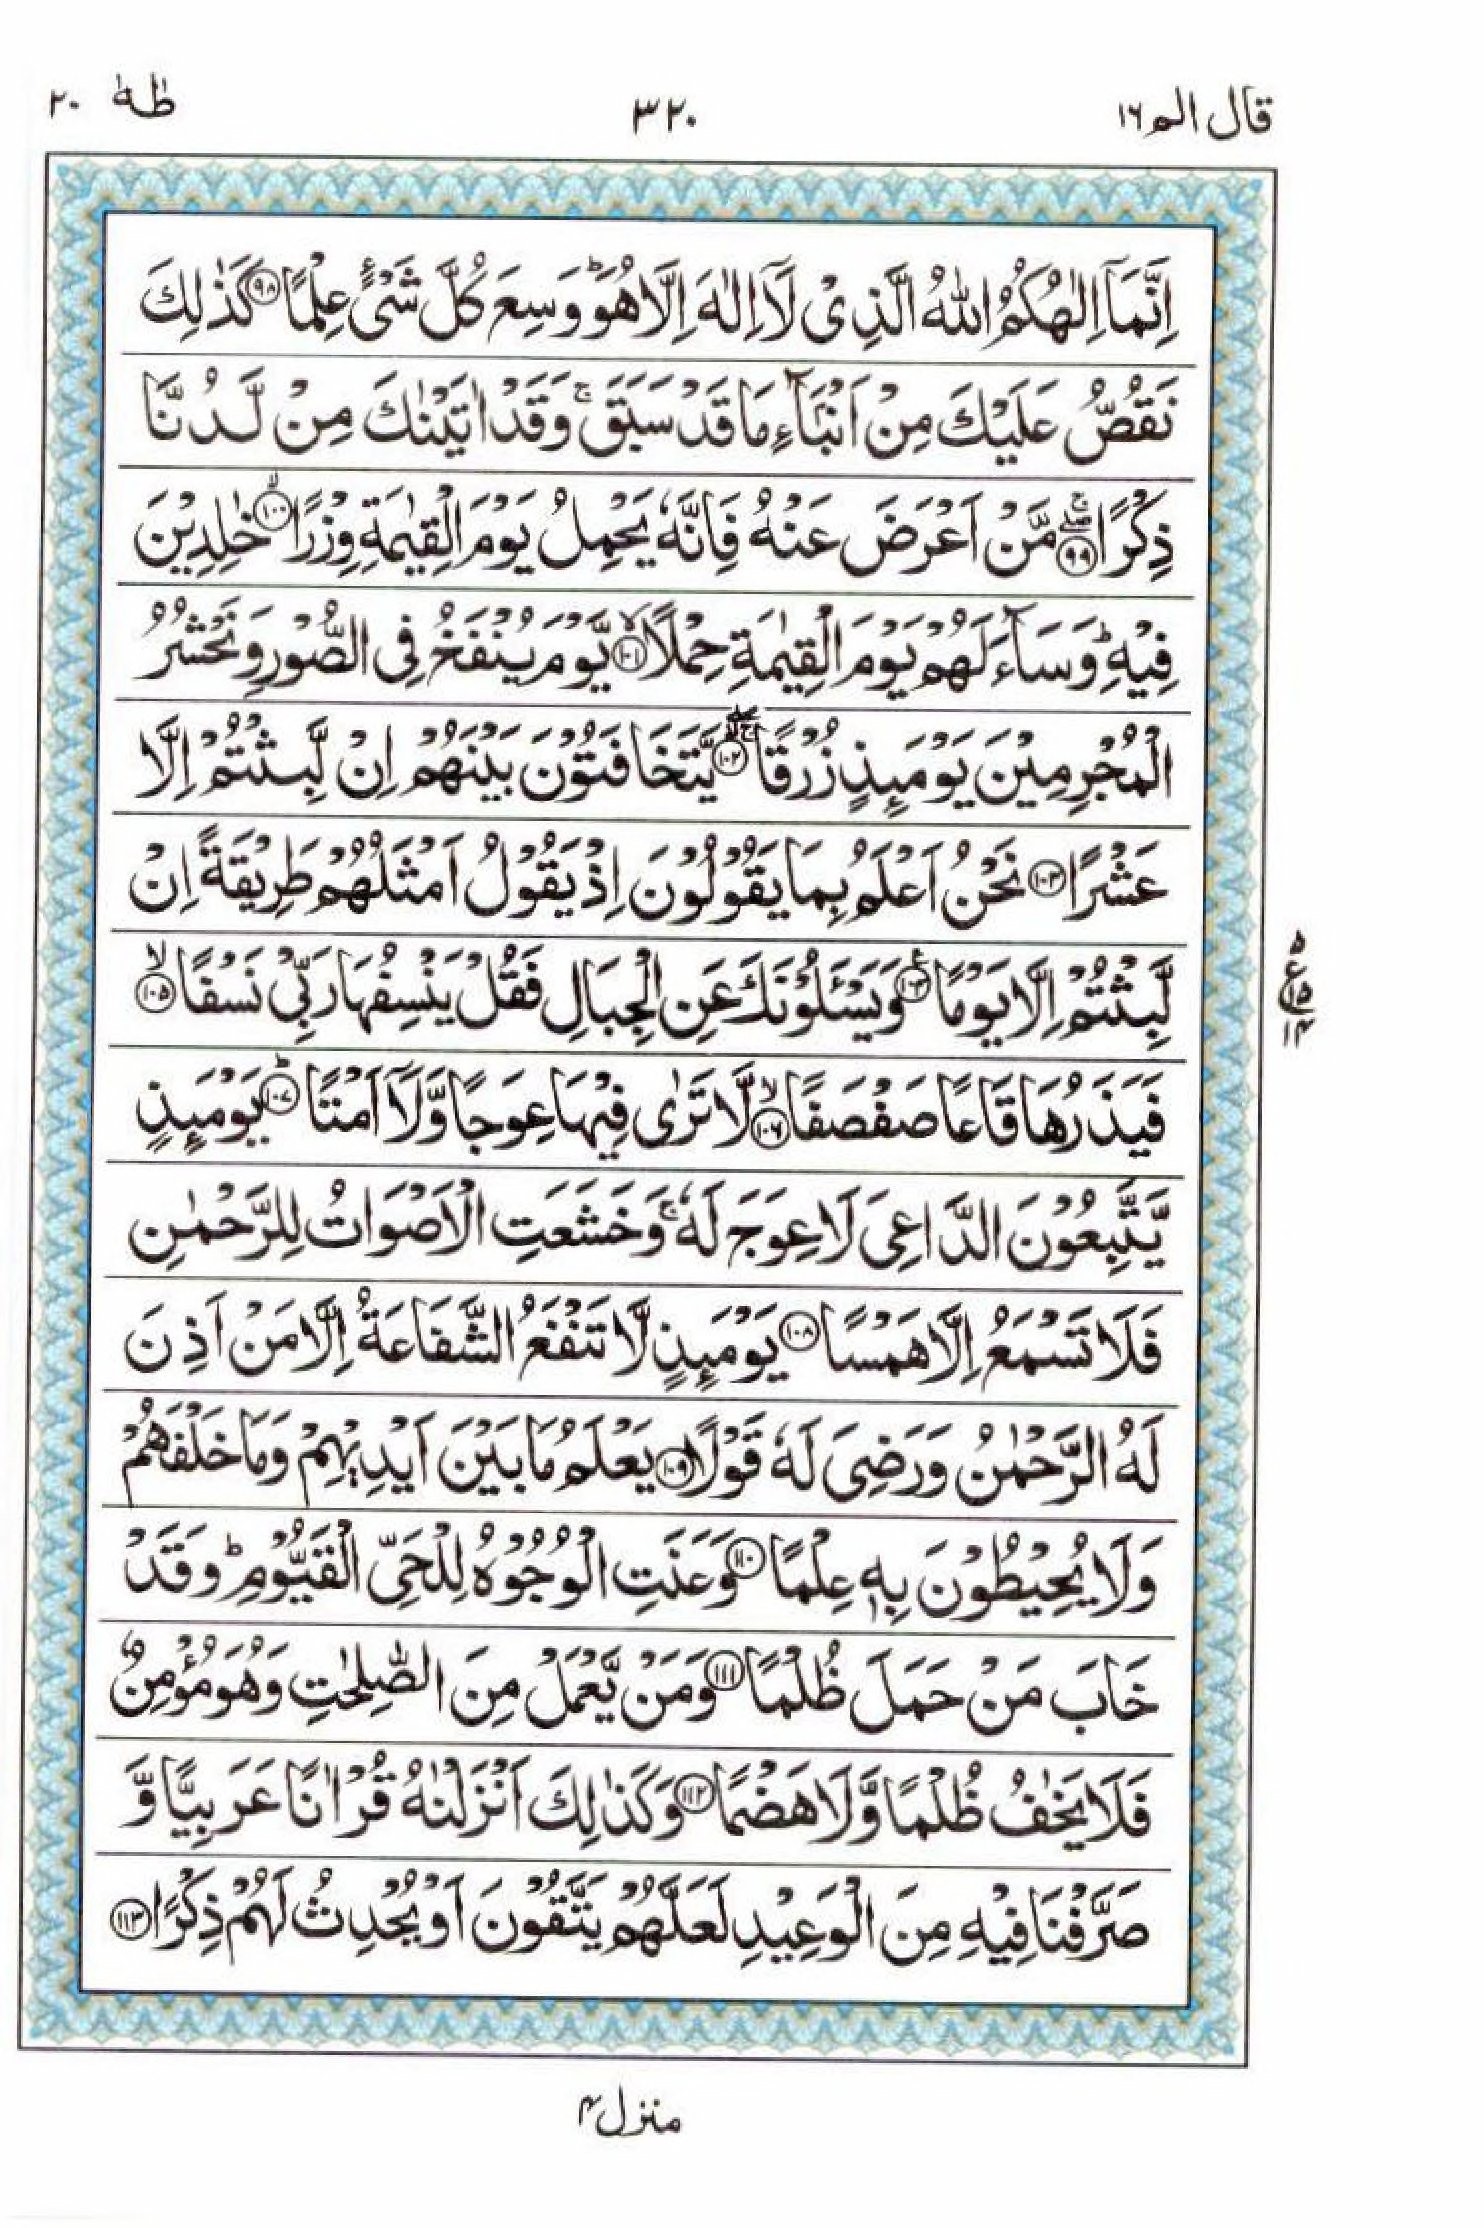 قال الم ١٦
٣٢٠
طٰهٰ ٢٠
اِنَّمَاۤ اِلٰهُكُمُ اللّٰهُ الَّذِیْ لَاۤ اِلٰهَ اِلَّا هُوَ ؕ وَسِعَ كُلَّ شَیْءٍ عِلْمًا ﴿۹۸﴾ كَذٰلِكَ
نَقُصُّ عَلَیْكَ مِنْ اَنْۢبَآءِ مَا قَدْ سَبَقَ ۚ وَقَدْ اٰتَیْنٰكَ مِنْ لَّدُنَّا
ذِكْرًا ﴿۹۹﴾ۖۚ مَّنْ اَعْرَضَ عَنْهُ فَاِنَّهٗ یَحْمِلُ یَوْمَ الْقِیٰمَةِ وِزْرًا ﴿۱۰۰﴾ۙ خٰلِدِیْنَ
فِیْهِ ؕ وَسَآءَ لَهُمْ یَوْمَ الْقِیٰمَةِ حِمْلًا ﴿۱۰۱﴾ۙ یَّوْمَ یُنْفَخُ فِی الصُّوْرِ وَنَحْشُرُ
الْمُجْرِمِیْنَ یَوْمَىِٕذٍ زُرْقًا ﴿۱۰۲﴾ۖۚ یَّتَخَافَتُوْنَ بَیْنَهُمْ اِنْ لَّبِثْتُمْ اِلَّا
عَشْرًا ﴿۱۰۳﴾ نَحْنُ اَعْلَمُ بِمَا یَقُوْلُوْنَ اِذْ یَقُوْلُ اَمْثَلُهُمْ طَرِیْقَةً اِنْ
لَّبِثْتُمْ اِلَّا یَوْمًا ﴿۱۰۴﴾ۧ وَیَسْـَٔلُوْنَكَ عَنِ الْجِبَالِ فَقُلْ یَنْسِفُهَا رَبِّیْ نَسْفًا ﴿۱۰۵﴾ۙ
فَیَذَرُهَا قَاعًا صَفْصَفًا ﴿۱۰۶﴾ۙ لَّا تَرٰی فِیْهَا عِوَجًا وَّلَاۤ اَمْتًا ﴿۱۰۷﴾ؕ یَوْمَىِٕذٍ
یَّتَّبِعُوْنَ الدَّاعِیَ لَا عِوَجَ لَهٗ ۚ وَخَشَعَتِ الْاَصْوَاتُ لِلرَّحْمٰنِ
فَلَا تَسْمَعُ اِلَّا هَمْسًا ﴿۱۰۸﴾ یَوْمَىِٕذٍ لَّا تَنْفَعُ الشَّفَاعَةُ اِلَّا مَنْ اَذِنَ
لَهُ الرَّحْمٰنُ وَرَضِیَ لَهٗ قَوْلًا ﴿۱۰۹﴾ یَعْلَمُ مَا بَیْنَ اَیْدِیْهِمْ وَمَا خَلْفَهُمْ
وَلَا یُحِیْطُوْنَ بِهٖ عِلْمًا ﴿۱۱۰﴾ وَعَنَتِ الْوُجُوْهُ لِلْحَیِّ الْقَیُّوْمِ ؕ وَقَدْ
خَابَ مَنْ حَمَلَ ظُلْمًا ﴿۱۱۱﴾ وَمَنْ یَّعْمَلْ مِنَ الصّٰلِحٰتِ وَهُوَ مُؤْمِنٌ
فَلَا یَخٰفُ ظُلْمًا وَّلَا هَضْمًا ﴿۱۱۲﴾ وَكَذٰلِكَ اَنْزَلْنٰهُ قُرْاٰنًا عَرَبِیًّا وَّ
صَرَّفْنَا فِیْهِ مِنَ الْوَعِیْدِ لَعَلَّهُمْ یَتَّقُوْنَ اَوْ یُحْدِثُ لَهُمْ ذِكْرًا ﴿۱۱۳﴾
۵
ع
۱۵
۱۴
منزل ۴